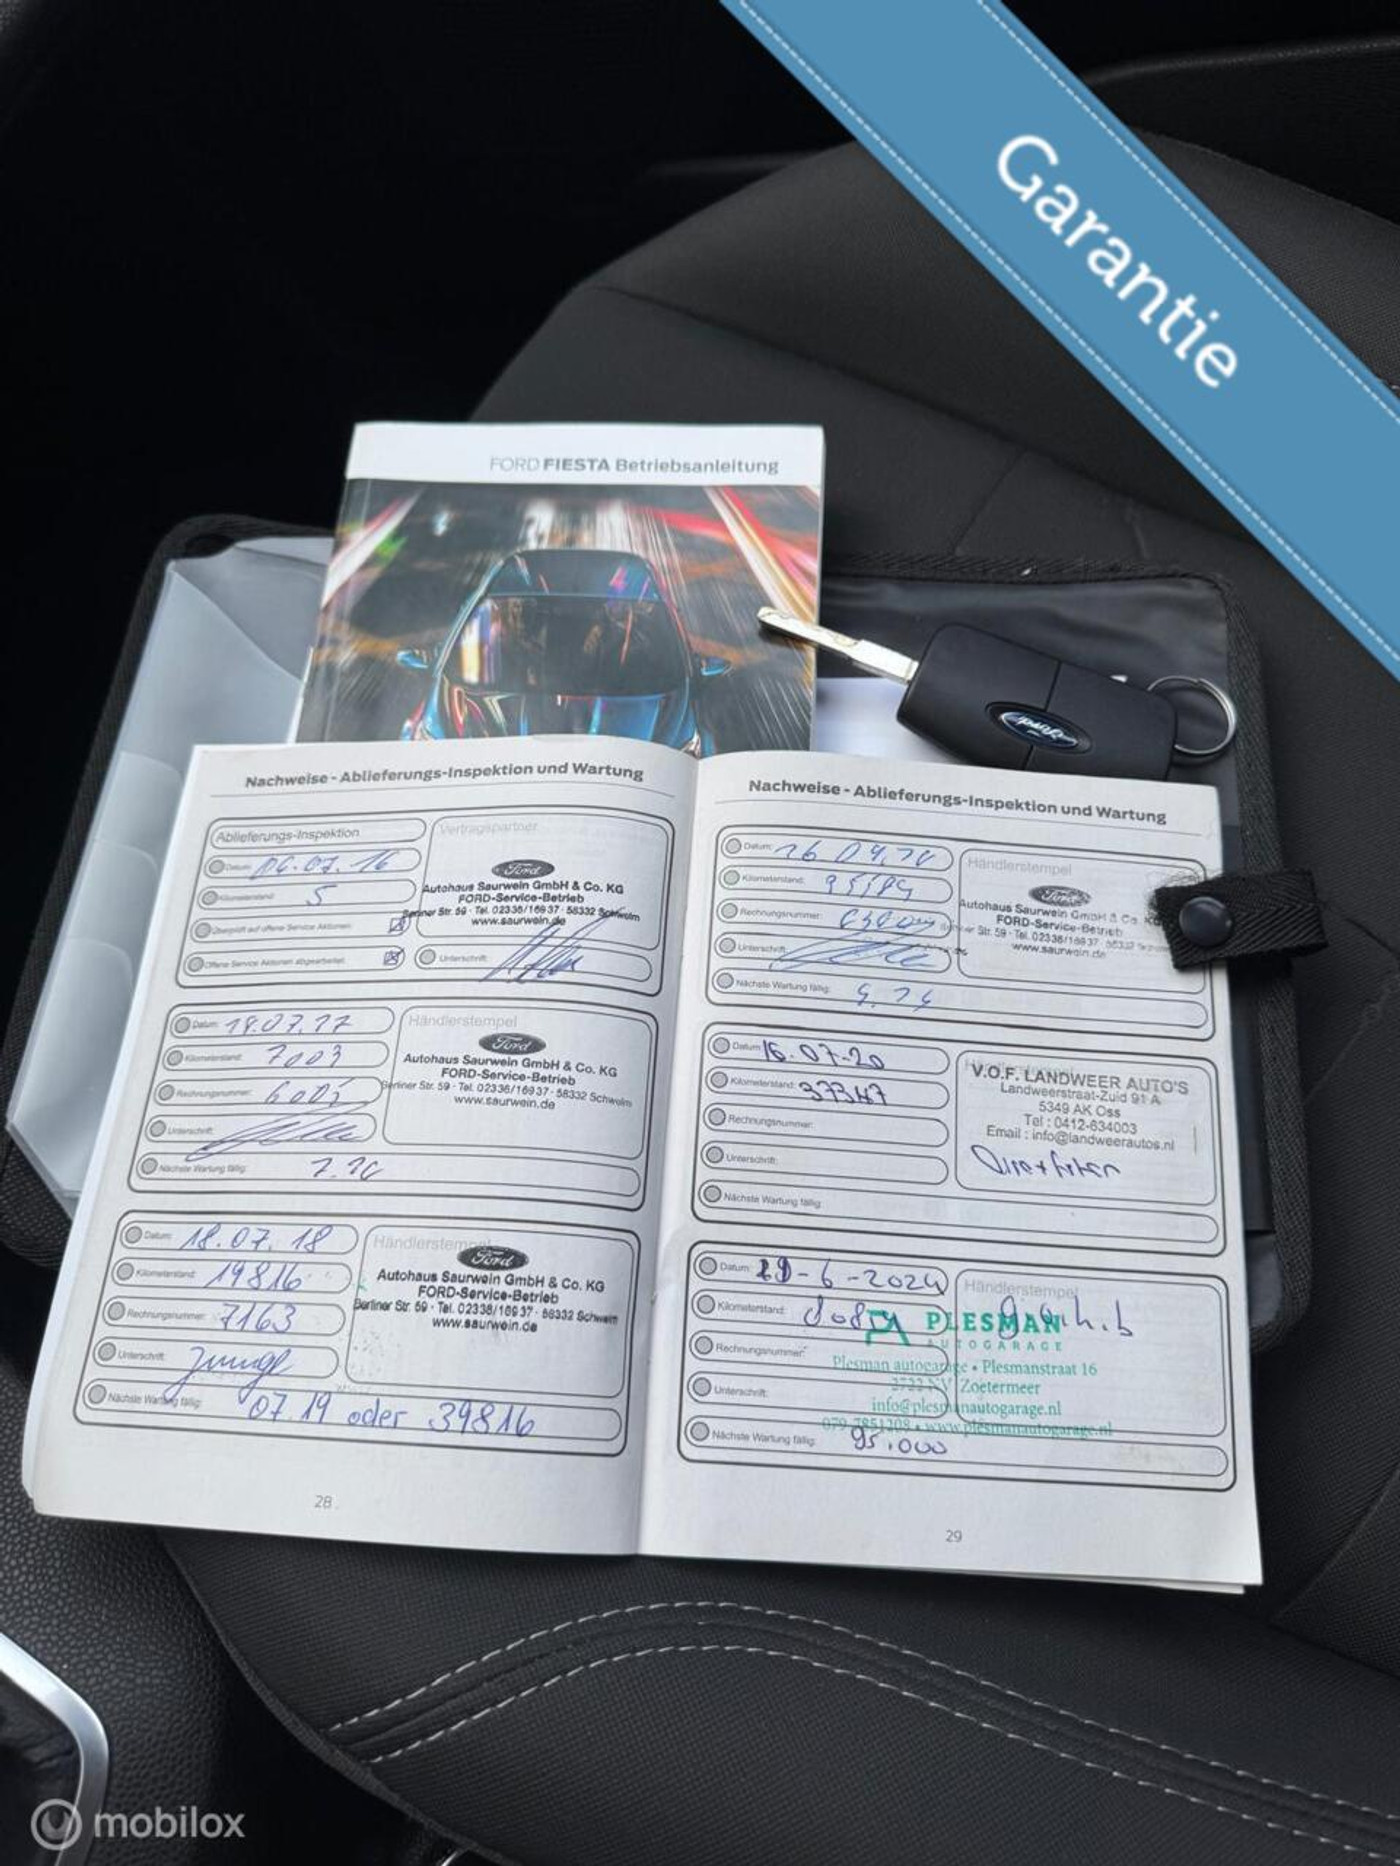 Garantie
FORD FIESTA Betriebsanleitung
Ford
Nachweise - Ablieferungs-Inspektion und Wartung
Ablieferungs-Inspektion
Vertragspartner
Datum: 04.07.16
Kilometerstand: 5
Überprüft auf offene Service Aktionen:
Offene Service Aktionen abgearbeitet:
Ford
Autohaus Saurwein GmbH & Co. KG
FORD-Service-Betrieb
Berliner Str. 59 · Tel. 02336/16937 · 58332 Schwelm
www.saurwein.de
Unterschrift:
Datum: 18.07.17
Kilometerstand: 7003
Rechnungsnummer:
Unterschrift:
Nächste Wartung fällig:
Händlerstempel
Ford
Autohaus Saurwein GmbH & Co. KG
FORD-Service-Betrieb
Berliner Str. 59 · Tel. 02336/16937 · 58332 Schwelm
www.saurwein.de
Datum: 18.07.18
Kilometerstand: 19816
Rechnungsnummer: 7163
Unterschrift:
Nächste Wartung fällig: 07.19 oder 39816
Händlerstempel
Ford
Autohaus Saurwein GmbH & Co. KG
FORD-Service-Betrieb
Berliner Str. 59 · Tel. 02336/16937 · 58332 Schwelm
www.saurwein.de
28
Nachweise - Ablieferungs-Inspektion und Wartung
Datum:
Kilometerstand:
Rechnungsnummer:
Unterschrift:
Nächste Wartung fällig:
Händlerstempel
Ford
Autohaus Saurwein GmbH & Co. KG
FORD-Service-Betrieb
Str. 59 · Tel. 02336/16937 · 58332
www.saurwein.de
Datum: 16.07-20
Kilometerstand: 37347
Rechnungsnummer:
Unterschrift:
Nächste Wartung fällig:
V.O.F. LANDWEER AUTO'S
Landweerstraat-Zuid 91 A
5349 AK Oss
Tel : 0412-634003
Email : info@landweerautos.nl
Datum: -6-2024
Kilometerstand:
Rechnungsnummer:
Unterschrift:
Nächste Wartung fällig: 95.000
Händlerstempel
PLESMAN
AUTOGARAGE
Plesman autogarage • Plesmanstraat 16
Zoetermeer
info@plesmanautogarage.nl
079-7851208 • www.plesmanautogarage.nl
29
mobilox